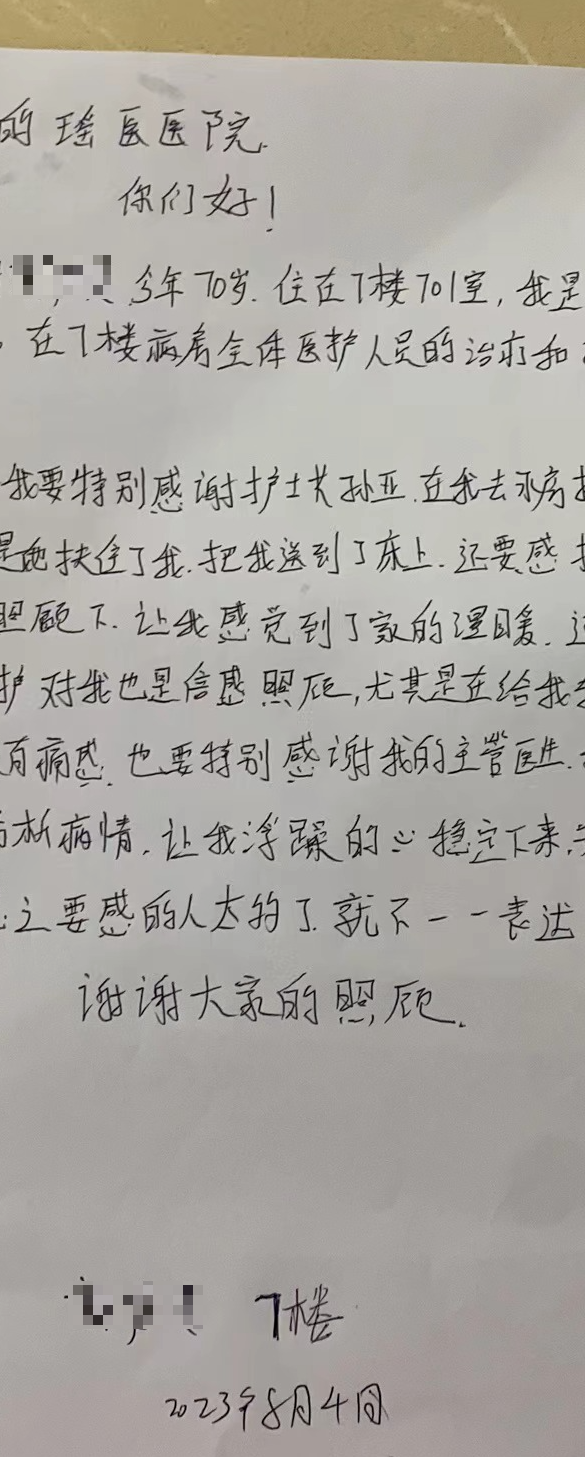 的瑶医医院.
你们好！
今年70岁.住在7楼701室，我是
在7楼病房全体医护人员的治疗和
我要特别感谢护士长孙亚.在我去水房
是她扶住了我.把我送到了床上.还要感
照顾下.让我感觉到了家的温暖.这
护对我也是倍感照顾,尤其是在给我
有痛感.也要特别感谢我的主管医生.
析病情.让我浮躁的心稳定下来.
之要感的人太多了.就不一一表达
谢谢大家的照顾.
7楼
2023年8月4日